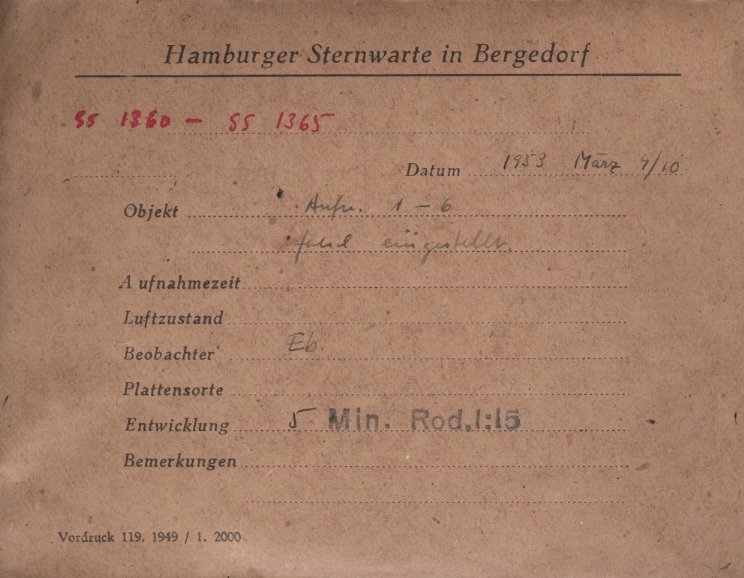 Hamburger Sternwarte in Bergedorf
SS 1360 — SS 1365
Datum 1953 März 9/10
Objekt Aufn. 1 – 6
falsch eingestellt.
Aufnahmezeit
Luftzustand
Beobachter Eb.
Plattensorte
Entwicklung 5 Min. Rod.1:15
Bemerkungen
Vordruck 119. 1949 / 1. 2000